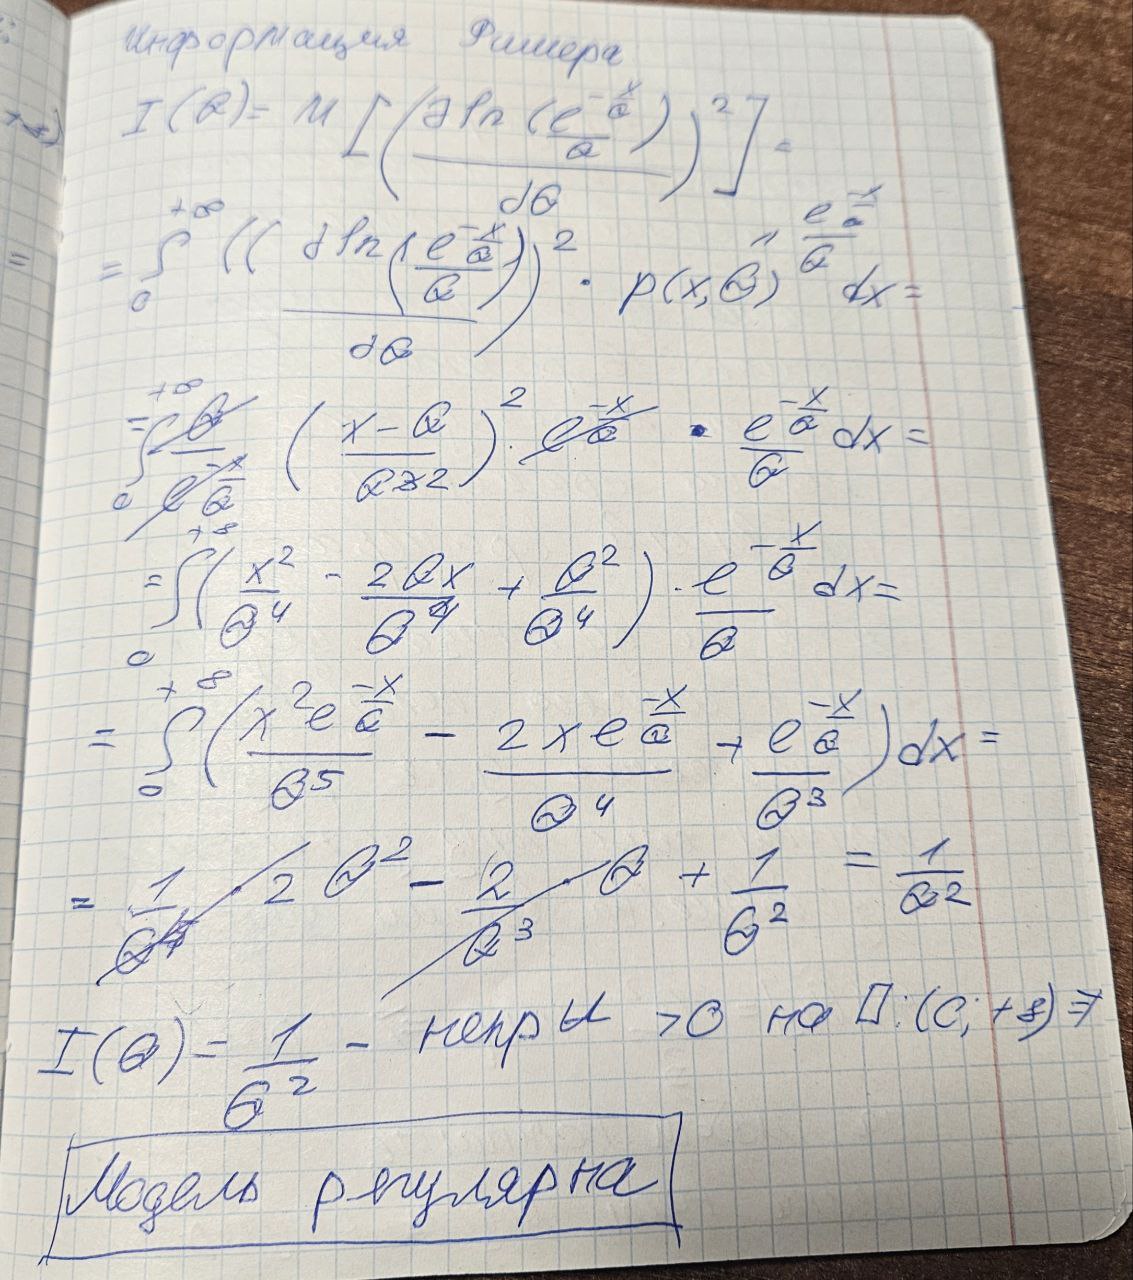 Информация Фишера
I(θ) = M [ ( ∂ln(e^{-x/θ}/θ) / ∂θ )² ] =
= ∫₀^{+∞} (( ∂ln(e^{-x/θ}/θ) / ∂θ )² · p(x,θ) " e^{-x/θ}/θ dx =
= ∫₀^{+∞} ( (x-θ)/θ² )² · e^{-x/θ}/θ dx =
= ∫₀^{+∞} ( x²/θ⁴ - 2θx/θ⁴ + θ²/θ⁴ ) · e^{-x/θ}/θ dx =
= ∫₀^{+∞} ( x²e^{-x/θ}/θ⁵ - 2xe^{-x/θ}/θ⁴ + e^{-x/θ}/θ³ ) dx =
= 1/θ⁴ · 2θ² - 2/θ³ · θ + 1/θ² = 1/θ²
I(θ) = 1/θ² - непр и >0 на : (0; +∞) ⇒
Модель регулярна